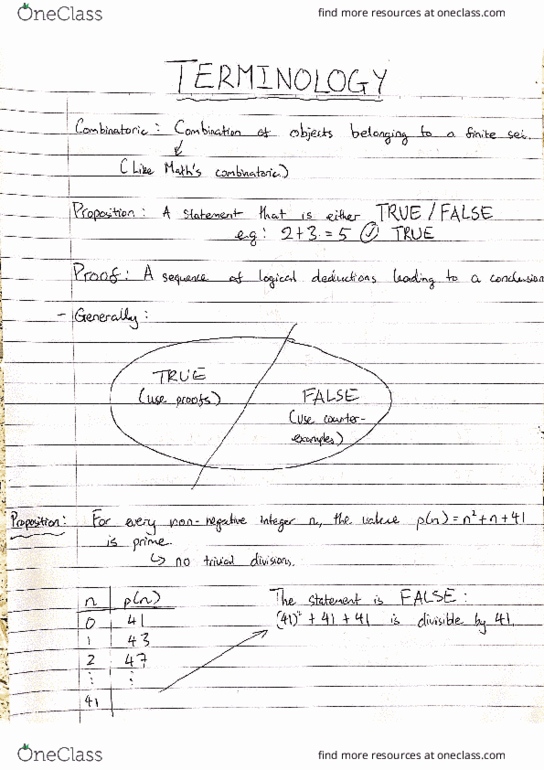 OneClass find more resources at oneclass.com
TERMINOLOGY
Combinatoric: Combination of objects belonging to a finite set.
(Like Math's combinatoric)
Proposition: A statement that is either TRUE/FALSE
e.g: 2+3=5 ✓ TRUE
Proof: A sequence of logical deductions leading to a conclusion
- Generally:
TRUE
(use proofs)
FALSE
(use counter-
examples)
Proposition: For every non-negative integer n, the value p(n)=n²+n+41
is prime.
↳ no trivial divisions.
n p(n)
0 41
1 43
2 47
⋮ ⋮
41
The statement is FALSE:
(41)² + 41 + 41 is divisible by 41.
OneClass find more resources at oneclass.com